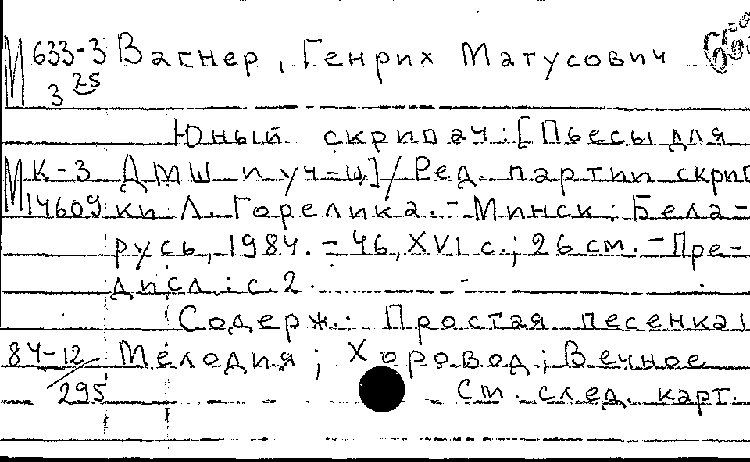 М 633-3 Вагнер, Генрих Матусович
3 25
Юный скрипач: [Пьесы для
М К-3 ДМШ и уч-щ] / Ред. партии скрип
14609 ки Л. Горелика. - Минск: Бела-
русь, 1984. - 46, XVI с.; 26 см. - Пре-
дисл.: с. 2.
Содерж.: Простая песенка;
84-12 Мелодия; Хоровод; Вечное
295 См. след. карт.